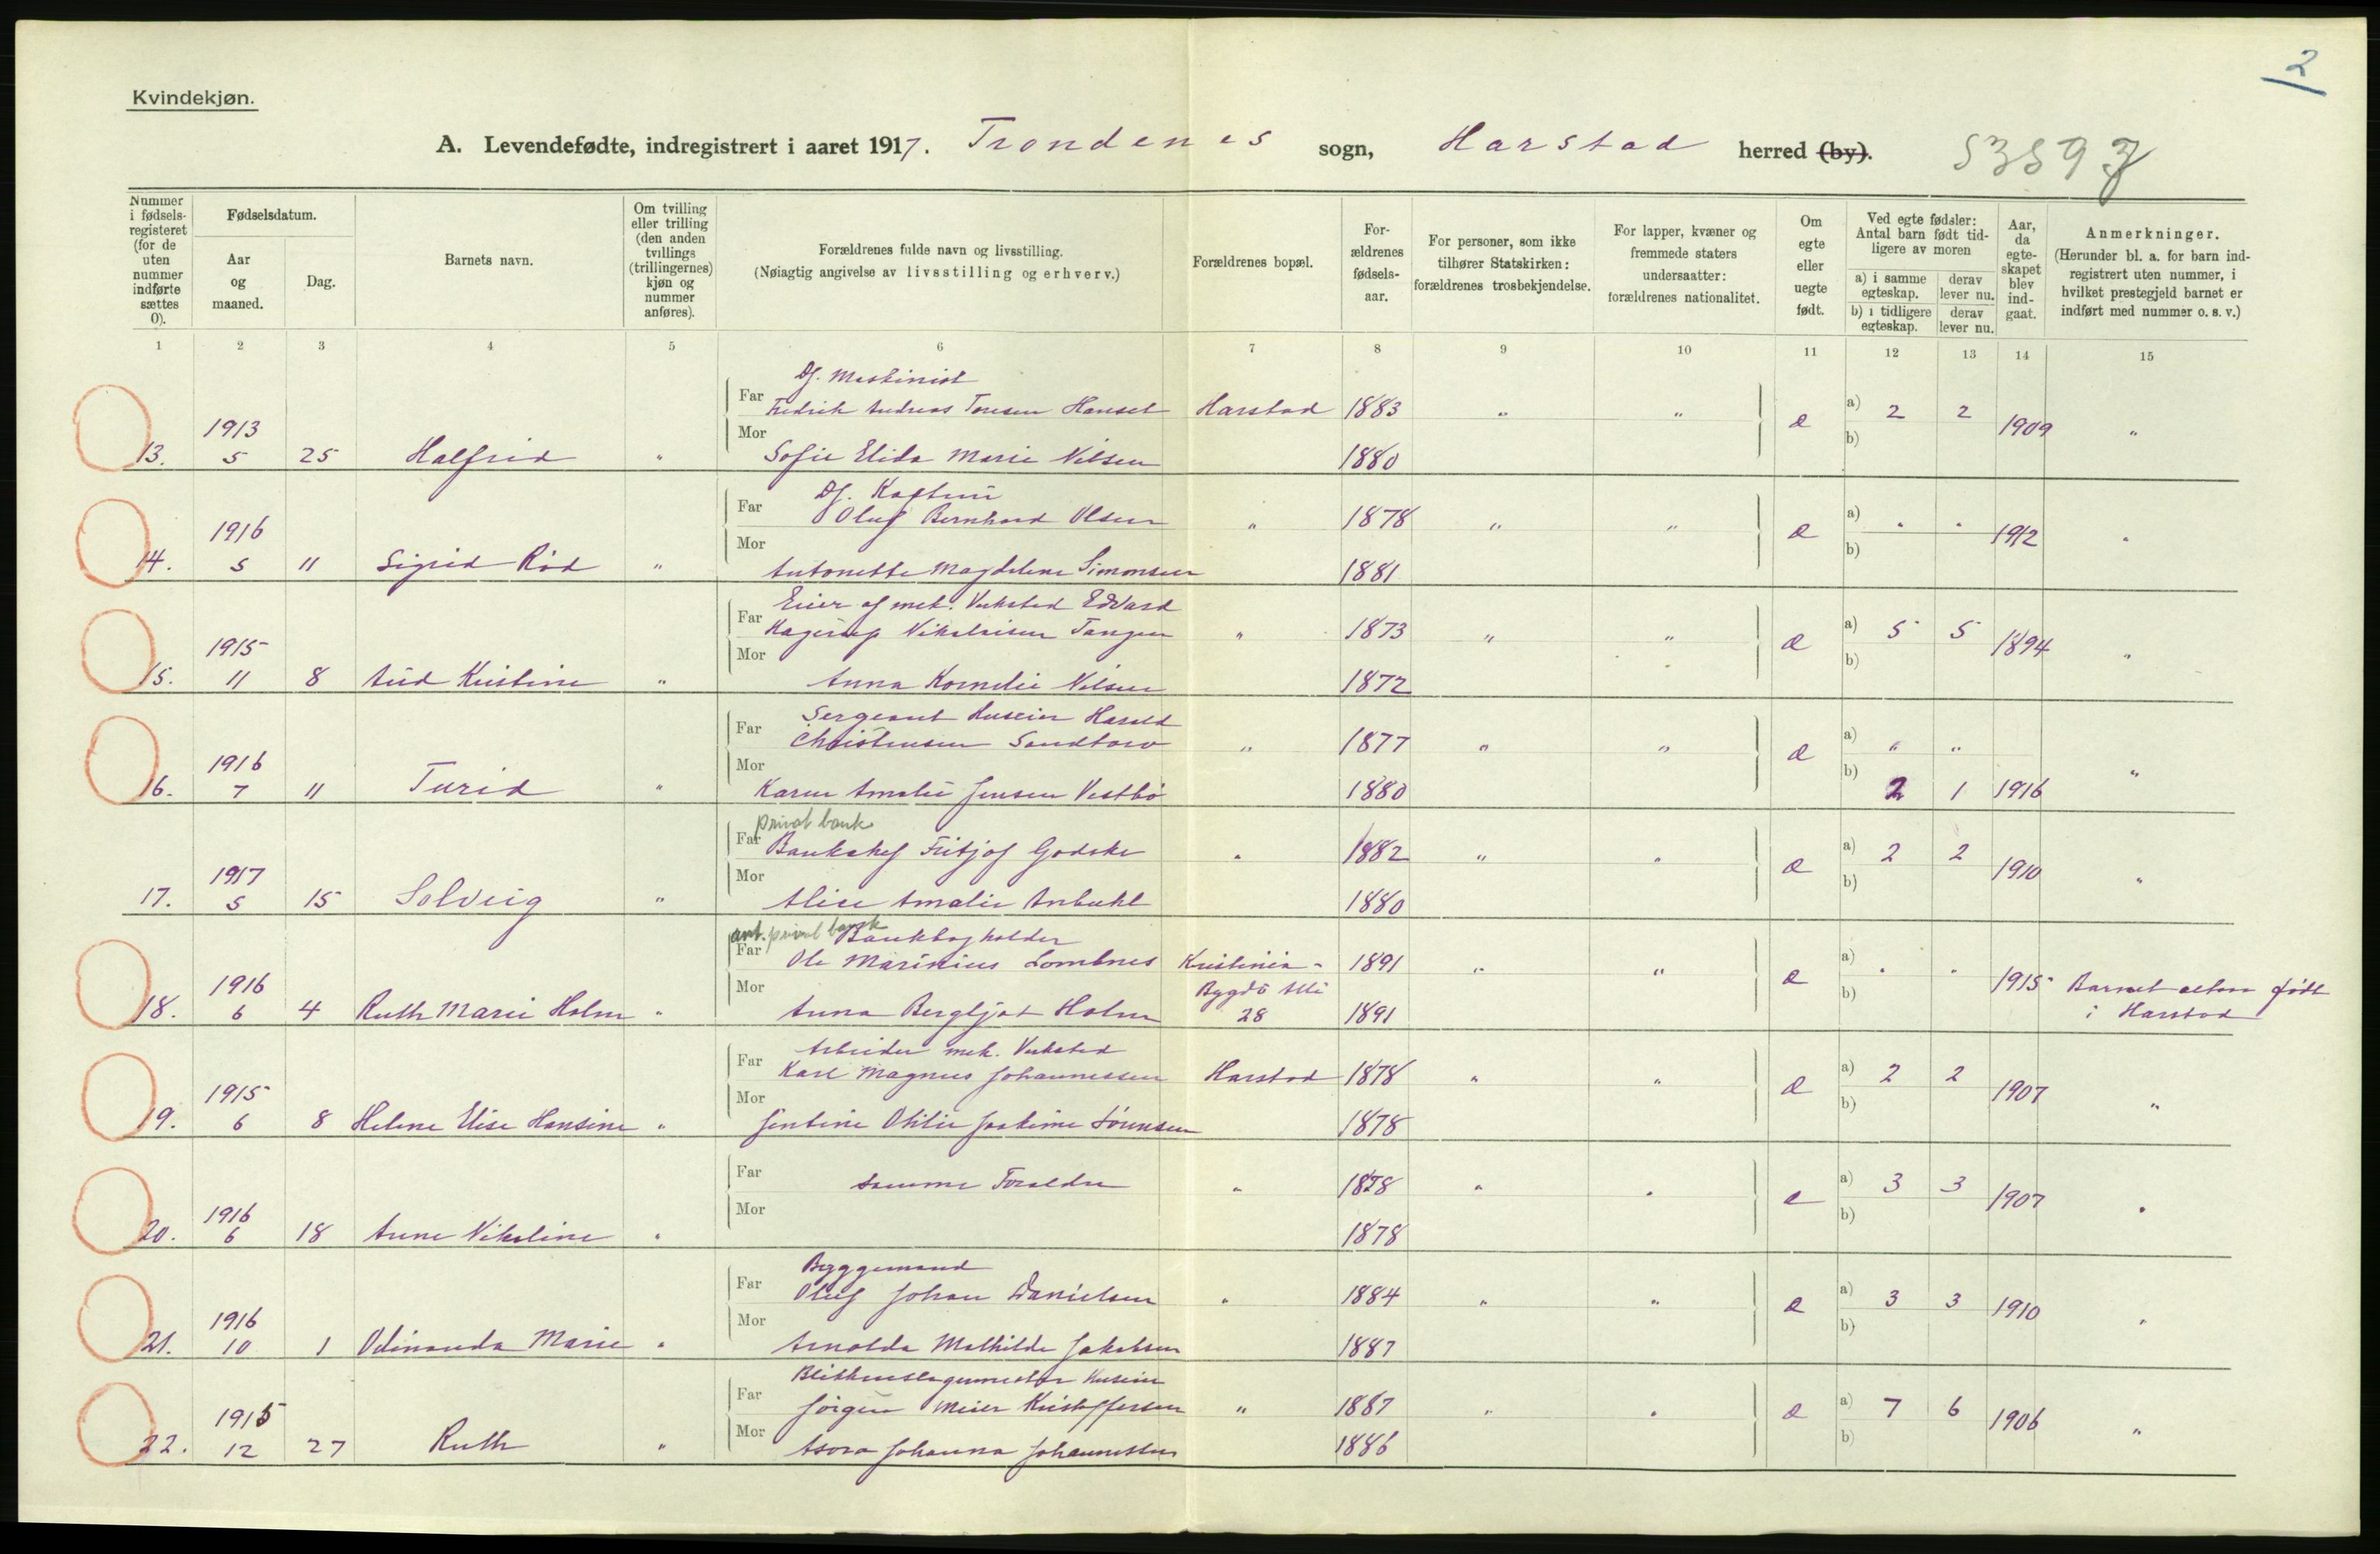 2
Kvindekjøn.
A. Levendefødte, indregistrert i aaret 1917. Trondenes sogn, Harstad herred (by).
Nummer i fødselsregisteret (for de uten nummer indførte sættes 0).
Fødselsdatum.
Aar og maaned.
Dag.
Barnets navn.
Om tvilling eller trilling (den anden tvillings (trillingernes) kjøn og nummer anføres).
Forældrenes fulde navn og livsstilling.
(Nøiagtig angivelse av livsstilling og erhverv.)
Forældrenes bopæl.
Forældrenes fødselsaar.
For personer, som ikke tilhører Statskirken: forældrenes trosbekjendelse.
For lapper, kvæner og fremmede staters undersaatter: forældrenes nationalitet.
Om egte eller uegte født.
Ved egte fødsler: Antal barn født tidligere av moren
a) i samme egteskap. derav lever nu.
b) i tidligere egteskap. derav lever nu.
Aar, da egteskapet blev indgaat.
Anmerkninger.
(Herunder bl. a. for barn indregistrert uten nummer, i hvilket prestegjeld barnet er indført med nummer o. s. v.)
1 2 3 4 5 6 7 8 9 10 11 12 13 14 15
Df. Maskinist
Far Fredrik Andreas Hansel Harstad 1883 " " e a) 2 2 1909 "
13. 1913 5 25 Halfrid " Mor Sofie Elida Marie Nilsen 1880 b)
Df. Kaptein
Far Oluf Bernhard Olsen " 1878 " " e a) " " 1912 "
14. 1916 5 11 Sigrid Röd " Mor Antonette Magdelene Simonsen 1881 b)
Eier af mek. Verksted Edvard
Far Hagerup Nikolaisen Tangen " 1873 " " e a) 5 5 1894 "
15. 1915 11 8 Aud Kristine " Mor Anna Kornelie Nilsen 1872 b)
Sergeant Huseier Harald
Far Christensen Sandtorv " 1877 " " e a) " " "
16. 1916 7 11 Turid " Mor Karen Amalie Jensen Vestbö 1880 b) 2 1 1916
privat bank
Far Bankchef Fritjof Godske " 1882 " " e a) 2 2 1910 "
17. 1917 5 15 Solveig " Mor Alise Amalie 1880 b)
privat bank Bankbogholder
Far Ole Marinius Lombnes Kristiania - 1891 " " e a) " " 1915 Barnet født
18. 1916 6 4 Ruth Marie Holm " Mor Anna Bergljot Holm Bygdö Alle 28 1891 b) i Harstad
Arbeider mek. Verksted
Far Karl Magnus Johannessen Harstad 1878 " " e a) 2 2 1907 "
19. 1915 6 8 Helene Elise Hansine " Mor Jentine Otilie Joakime Sörensen 1878 b)
Far samme Foraldre " 1878 " " e a) 3 3 1907 "
20. 1916 6 18 Anne Nikoline " Mor 1878 b)
Byggemand
Far Oluf Johan Danielsen " 1884 " " e a) 3 3 1910 "
21. 1916 10 1 Odinanda Marie " Mor Arnolda Mathilde Jakobsen 1887 b)
Blikkenslagermester Huseier
Far Jörgen Meier Kristoffersen " 1887 " " e a) 7 6 1906 "
22. 1915 12 27 Ruth " Mor Asora Johanna Johannessen 1886 b)